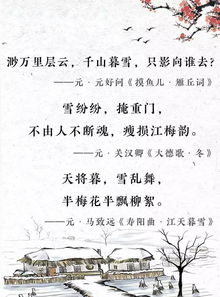 渺万里层云，千山暮雪，只影向谁去?
——元·元好问《摸鱼儿·雁丘词》
雪纷纷，掩重门，
不由人不断魂，瘦损江梅韵。
——元·关汉卿《大德歌·冬》
天将暮，雪乱舞，
半梅花半飘柳絮。
——元·马致远《寿阳曲·江天暮雪》